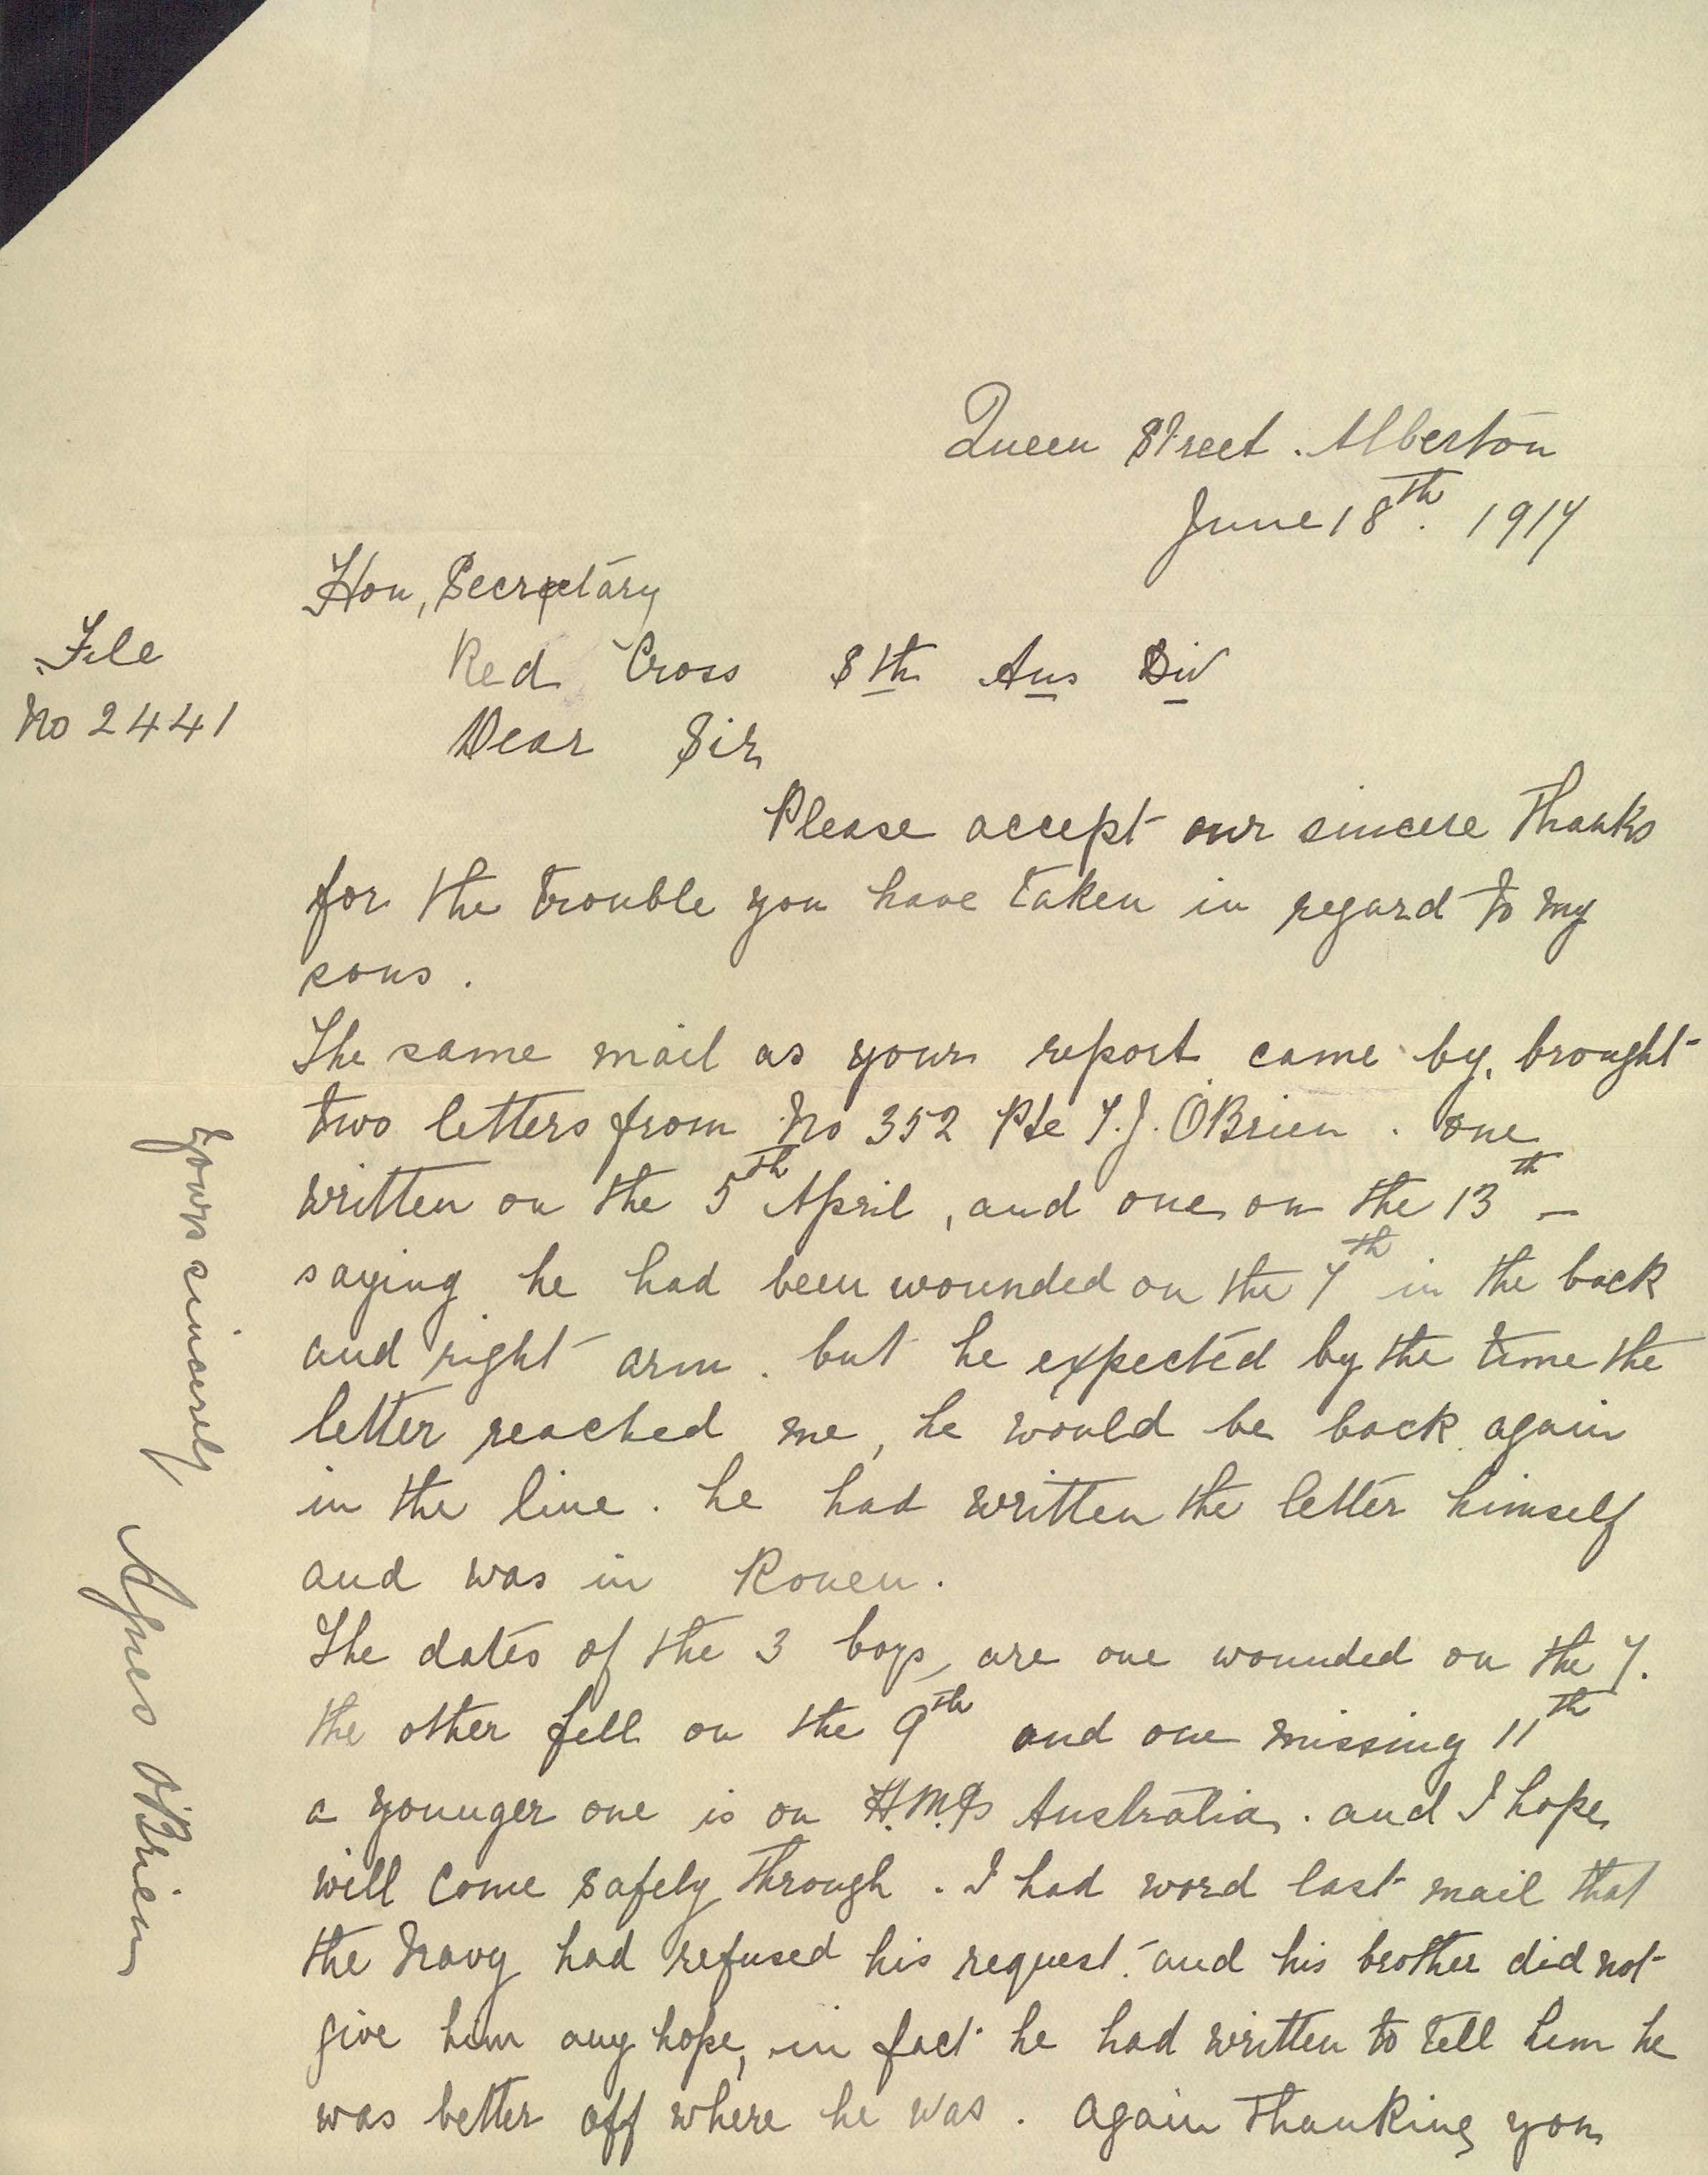 Queen Street. Alberton
June 18th. 1917
Hon, Secretary
File
No 2441
Red Cross Sth Aus Div
Dear Sir
Please accept our sincere thanks
for the trouble you have taken in regard to my
sons.
The same mail as your report came by, brought
two letters from No 352 Pte T.J. O'Brien. one
written on the 5th April, and one on the 13th -
saying he had been wounded on the 7th in the back
and right arm. but he expected by the time the
letter reached me, he would be back again
in the line. he had written the letter himself
and was in Rouen.
The dates of the 3 boys, are one wounded on the 7.
the other fell on the 9th and one missing 11th
a younger one is on H.M.A.S Australia. and I hope
will come safely through. I had word last mail that
the Navy had refused his request. and his brother did not
give him any hope, in fact he had written to tell him he
was better off where he was. Again thanking you
Yours sincerely
Agnes O'Brien